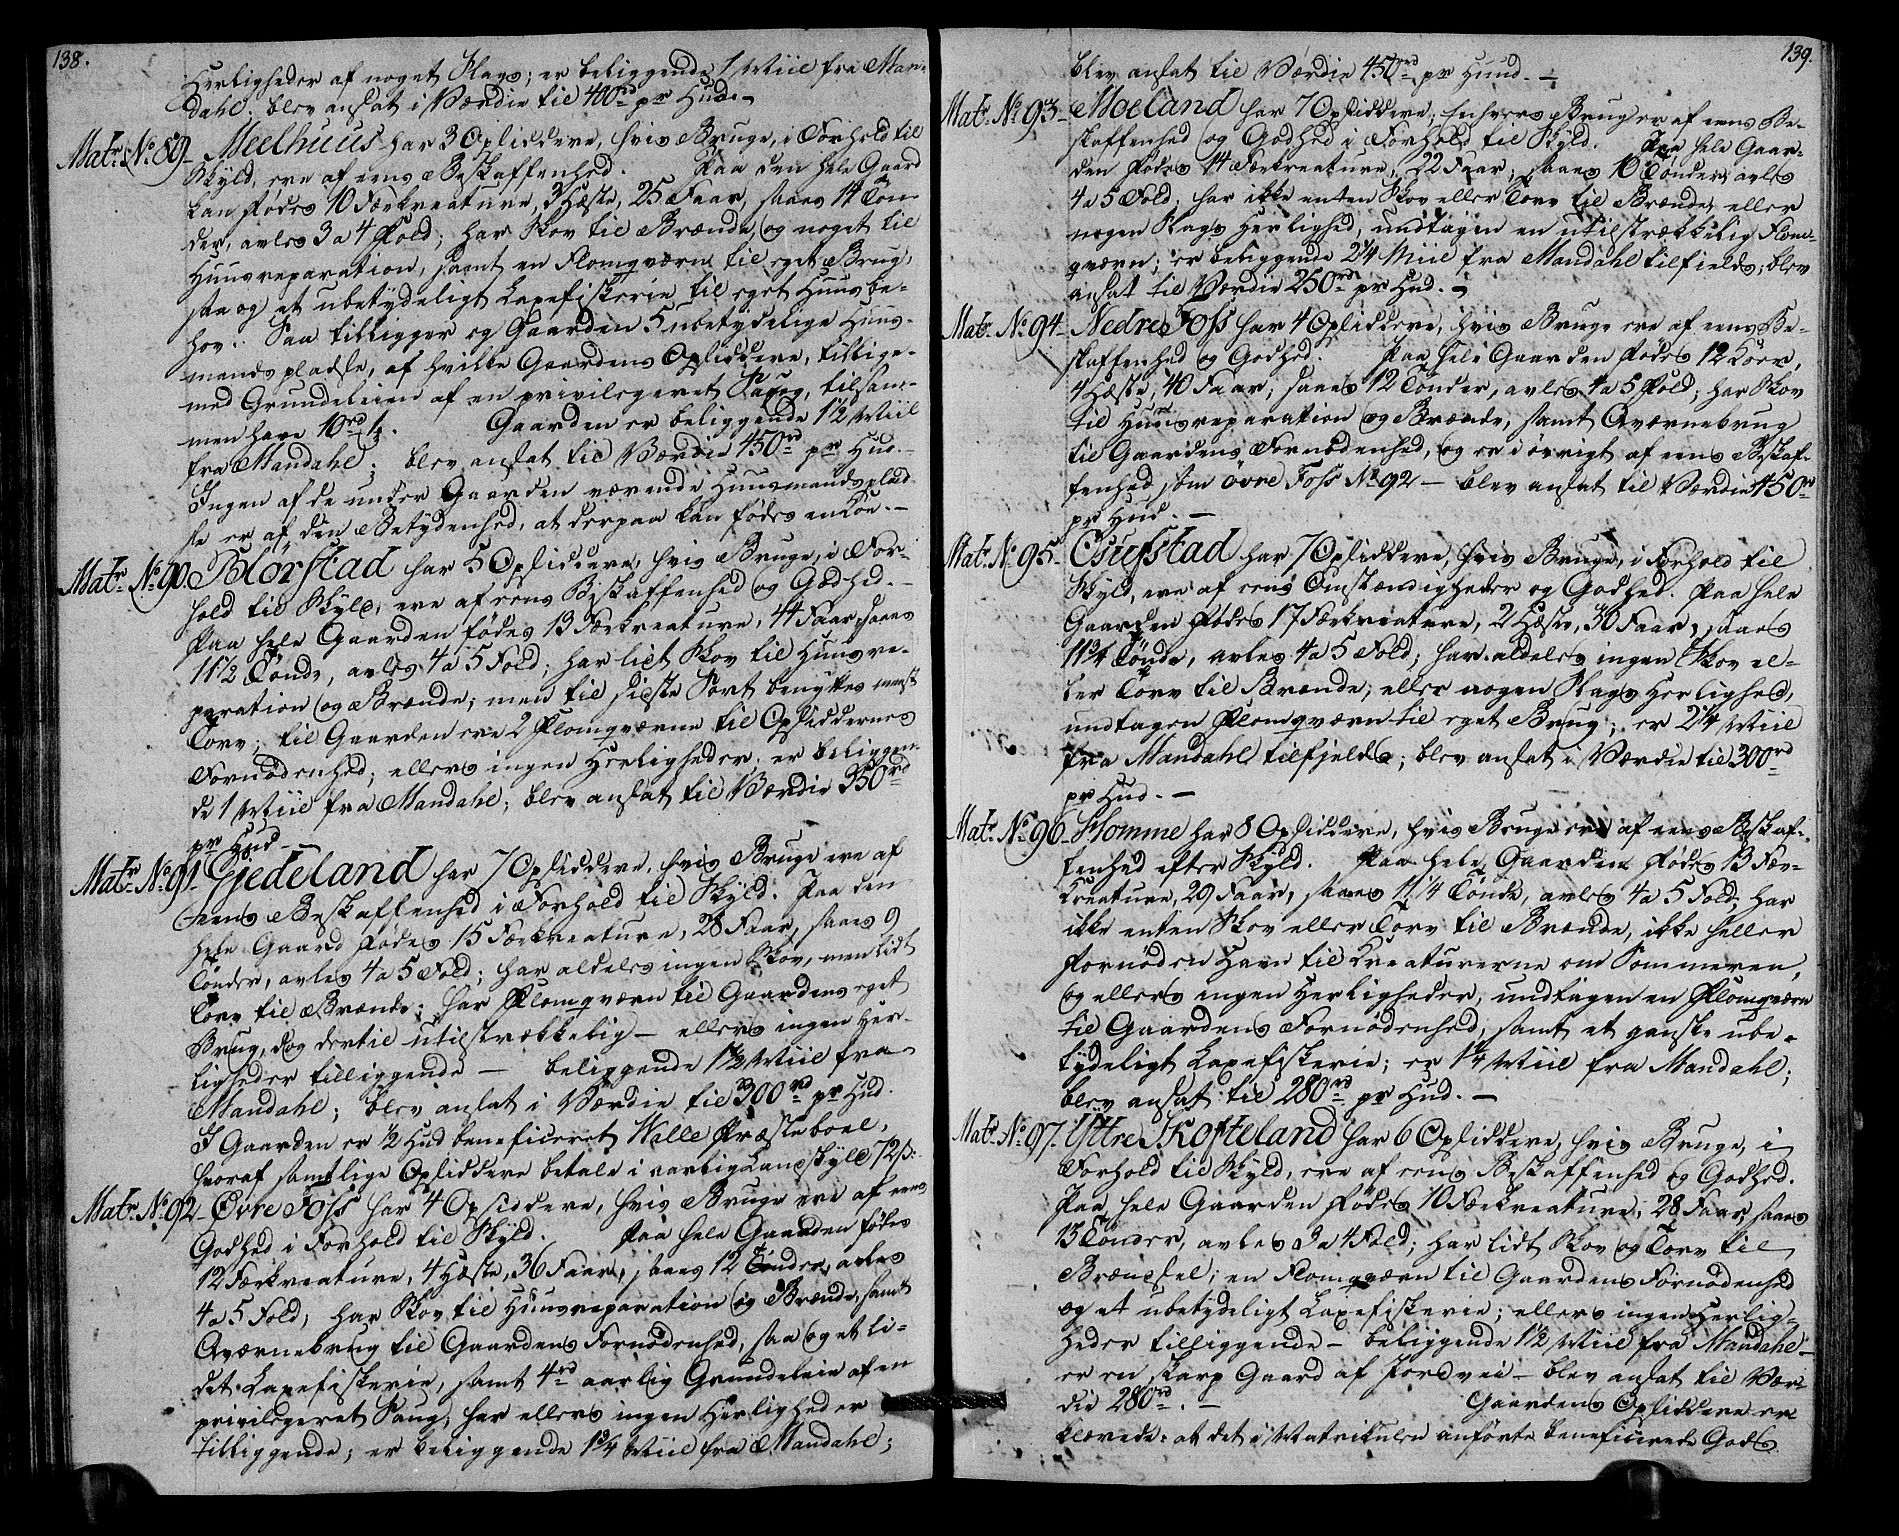 138.
Herligheder af noget Slags; er beliggende 1 Miil fra Man-
dahl; blev ansat i Værdie til 400rd pr Hud. –
Matr. No. 89. Meelhuus har 3 Opsiddere, hvis Bruge, i Forhold til
Skyld, ere af eens Beskaffenhed. Paa den hele Gaard
kan fødes 10 Fækreature, 3 Hæste, 25 Faar, saaes 14 Tøn-
der, avles 3 a 4 Fold; har Skov til Brænde, og noget til
Huusreparation, samt en Flomqværn til eget Brug,
saa og et ubetydeligt Laxefiskerie til eget Huusbe-
hov. Saa tilligger og Gaarden 5 ubetydelige Huus-
mandspladse, af hvilke Gaardens Opsiddere, tillige-
med Grundeleien af en privilegeret Saug, tilsam-
men have 10rd. Gaarden er beliggende 1½ Miil
fra Mandahl; blev ansat til Værdie 450rd pr Hud. –
Ingen af de under Gaarden værende Huusmandsplad-
se er af den Betydenhed, at derpaa kan fødes en Koe. –
Matr. No. 90. Blørstad har 5 Opsiddere, hvis Bruge, i For-
hold til Skyld, ere af eens Beskaffenhed og Godhed. –
Paa hele Gaarden fødes 13 Fækreature, 44 Faar, saaes
11½ Tønde, avles 4 a 5 Fold; har lidt Skov til Huusre-
paration og Brænde; men til sidste Sort benyttes meest
Torv; til Gaarden ere 2 Flomqværne til Opsiddernes
Fornødenhed; ellers ingen Herligheder; er beliggen-
de 1 Miil fra Mandahl; blev ansat til Værdie 350rd
pr Hud –
Matr. No. 91. Gjedeland har 7 Opsiddere, hvis Bruge ere af
eens Beskaffenhed i Forhold til Skyld. Paa den
hele Gaard fødes 15 Fækreature, 28 Faar, saaes 9
Tønder, avles 4 a 5 Fold; har aldeles ingen Skov, men lidt
Torv til Brænde; har Flomqværn til Gaardens eget
Brug, dog dertil utilstrækkelig – ellers ingen Her-
ligheder tilliggende – beliggende 1½ Miil fra
Mandahl; blev ansat i Værdie til 300rd pr Hud.
I Gaarden er ½ Hud beneficeret Walle Præsteboel,
hvoraf samtlige Opsiddere betale i aarlig Landskyld 72 s:
Matr. No. 92. Øvre Foss har 4 Opsiddere, hvis Bruge ere af eens
Godhed i Forhold til Skyld. Paa hele Gaarden fødes
12 Fækreature, 4 Hæste, 36 Faar, saaes 12 Tønder, avles
4 a 5 Fold; har Skov til Huusreparation og Brænde, samt
Qværnebrug til Gaardens Fornødenhed, saa og et li-
det Laxefiskerie, samt 4rd aarlig Grundeleie af en
privilegeret Saug; har ellers ingen Herligheder
tilliggende; er beliggende 1¾ Miil fra Mandahl;
139.
blev ansat til Værdie 450rd pr Hud. –
Matr. No. 93. Moeland har 7 Opsiddere, enhvers Brug er af eens Be-
skaffenhed og Godhed i Forhold til Skyld. Paa hele Gaar-
den fødes 14 Fækreature, 22 Faar, saaes 10 Tønder, avles
4 a 5 Fold; har ikke enten Skov eller Torv til Brænde, eller
nogen Slags Herlighed, undtagen en utilstrækkelig Flom-
qværn; er beliggende 2¼ Miil fra Mandahl tilfields; blev
ansat til Værdie 250rd pr Hud. –
Matr. No. 94. Nedre Foss har 4 Opsiddere, hvis Bruge ere af eens Be-
skaffenhed og Godhed. Paa hele Gaarden fødes 12 Køer,
4 Hæste, 40 Faar, saaes 12 Tønder, avles 4 a 5 Fold; har Skov
til Huusreparation og Brænde, samt Qværnebrug
til Gaardens Fornødenhed, og er i øvrigt af eens Beskaf-
fenhed som øvre Foss No. 92 – blev ansat til Værdie 450rd
pr Hud. –
Matr. No. 95. Osestad har 7 Opsiddere, hvis Bruge, i Forhold til
Skyld, ere af eens Omstændigheder og Godhed. Paa hele
Gaarden fødes 17 Fækreature, 2 Hæste, 30 Faar, saaes
11¾ Tønde, avles 4 a 5 Fold; har aldeles ingen Skov el-
ler Torv til Brænde; eller nogen Slags Herlighed,
undtagen Flomqværn til eget Brug; er 2¼ Miil
fra Mandahl tilfjelds; blev ansat i Værdie til 300rd
pr Hud. –
Matr. No. 96. Homme har 8 Opsiddere, hvis Bruge ere af eens Beskaf-
fenhed efter Skyld. Paa hele Gaarden fødes 13 Fæe-
kreature, 29 Faar, saaes 11¼ Tønde, avles 4 a 5 Fold, har
ikke enten Skov eller Torv til Brænde, ikke heller
fornøden Havn til Kreaturerne om Sommeren,
og ellers ingen Herligheder, undtagen en Flomqværn
til Gaardens Fornødenhed, samt et ganske ube-
tydeligt Laxefiskerie; er 1¼ Miil fra Mandahl;
blev ansat til 280rd pr Hud. –
Matr. No. 97. Yttre Skofteland har 6 Opsiddere, hvis Bruge, i
Forhold til Skyld, ere af eens Beskaffenhed og Godhed.
Paa hele Gaarden fødes 10 Fækreature, 28 Faar, saaes
13 Tønder, avles 3 a 4 Fold; har lidt Skov og Torv til
Brændsel; en Flomqværn til Gaardens Fornødenhed
og et ubetydeligt Laxefiskerie; ellers ingen Herlig-
heder tilliggende – beliggende 1½ Miil fra Mandahl –
er en skarp Gaard af Jordvei – blev ansat til Vær-
die 280rd. – Gaardens Opsiddere er-
klærede: at det i Matrikulen anførte beneficerede Gods